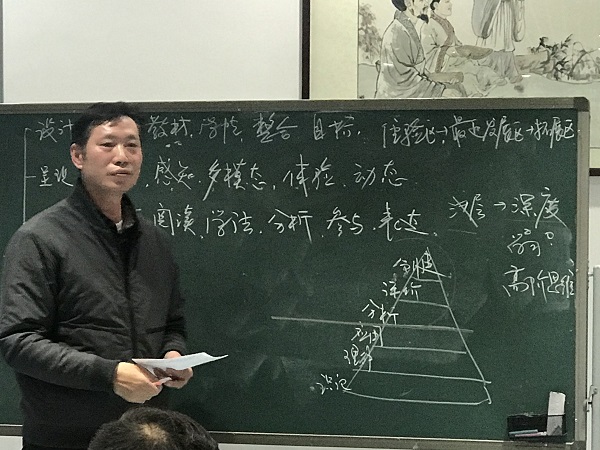 设计 教材、学情、整合 目标. 体验区→最近发展区→拓展区.
呈现 、感知、多模态、体验、动态
阅读、学法、分析、参与、表达.
浅层→深度
学习?
高阶思维
创造
评价
分析
应用
理解
识记